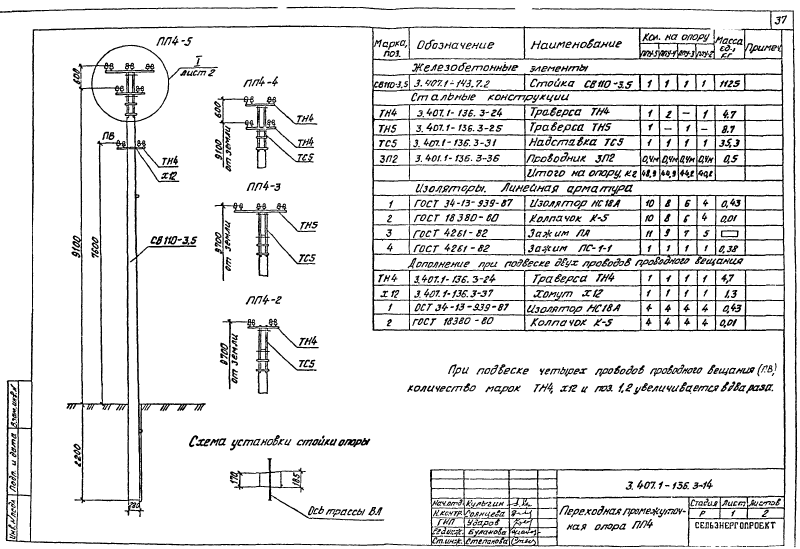 37
ПП4-5
I
лист 2
600
ПВ
ТН4
Х12
9100
7600
СВ110-3,5
2200
ПП4-4
600
9100
от земли
ТН4
ТН4
ТС5
ПП4-3
8700
от земли
ТН5
ТС5
ПП4-2
8700
от земли
ТН4
ТС5
Схема установки стойки опоры
170
185
Ось трассы ВЛ
Марка, поз. Обозначение Наименование Кол. на опору Масса ед., кг Примеч
Железобетонные элементы
СВ110-3,5 3.407.1-143.7.2 Стойка СВ110-3,5 1 1 1 1 1125
Стальные конструкции
ТН4 3.407.1-136.3-24 Траверса ТН4 1 2 – 1 4,7
ТН5 3.407.1-136.3-25 Траверса ТН5 1 – 1 – 8,7
ТС5 3.407.1-136.3-31 Надставка ТС5 1 1 1 1 35,3
ЗП2 3.407.1-136.3-36 Проводник ЗП2 0,4м 0,4м 0,4м 0,4м 0,5
Итого на опору, кг 48,9 44,9 44,2 40,2
Изоляторы. Линейная арматура
1 ГОСТ 34-13-939-87 Изолятор НС18А 10 8 6 4 0,43
2 ГОСТ 18380-80 Колпачок К-5 10 8 6 4 0,01
3 ГОСТ 4261-82 Зажим ПА 11 9 7 5
4 ГОСТ 4261-82 Зажим ПС-1-1 1 1 1 1 0,38
Дополнение при подвеске двух проводов проводного вещания
ТН4 3.407.1-136.3-24 Траверса ТН4 1 1 1 1 4,7
Х12 3.407.1-136.3-37 Хомут Х12 1 1 1 1 1,3
1 ОСТ 34-13-939-87 Изолятор НС18А 4 4 4 4 0,43
2 ГОСТ 18380-80 Колпачок К-5 4 4 4 4 0,01
При подвеске четырех проводов проводного вещания (ПВ)
количество марок ТН4, Х12 и поз. 1,2 увеличивается в два раза.
3.407.1-136.3-14
Нач.отд. Кулыгин
Н.контр. Солнцева
ГИП Ударов
Вед.инж. Буланова
Ст.инж. Степанова
Переходная промежуточ-
ная опора ПП4
Стадия Лист Листов
Р 1 2
СЕЛЬЭНЕРГОПРОЕКТ
Инв.№ подл. Подп. и дата Взам.инв.№